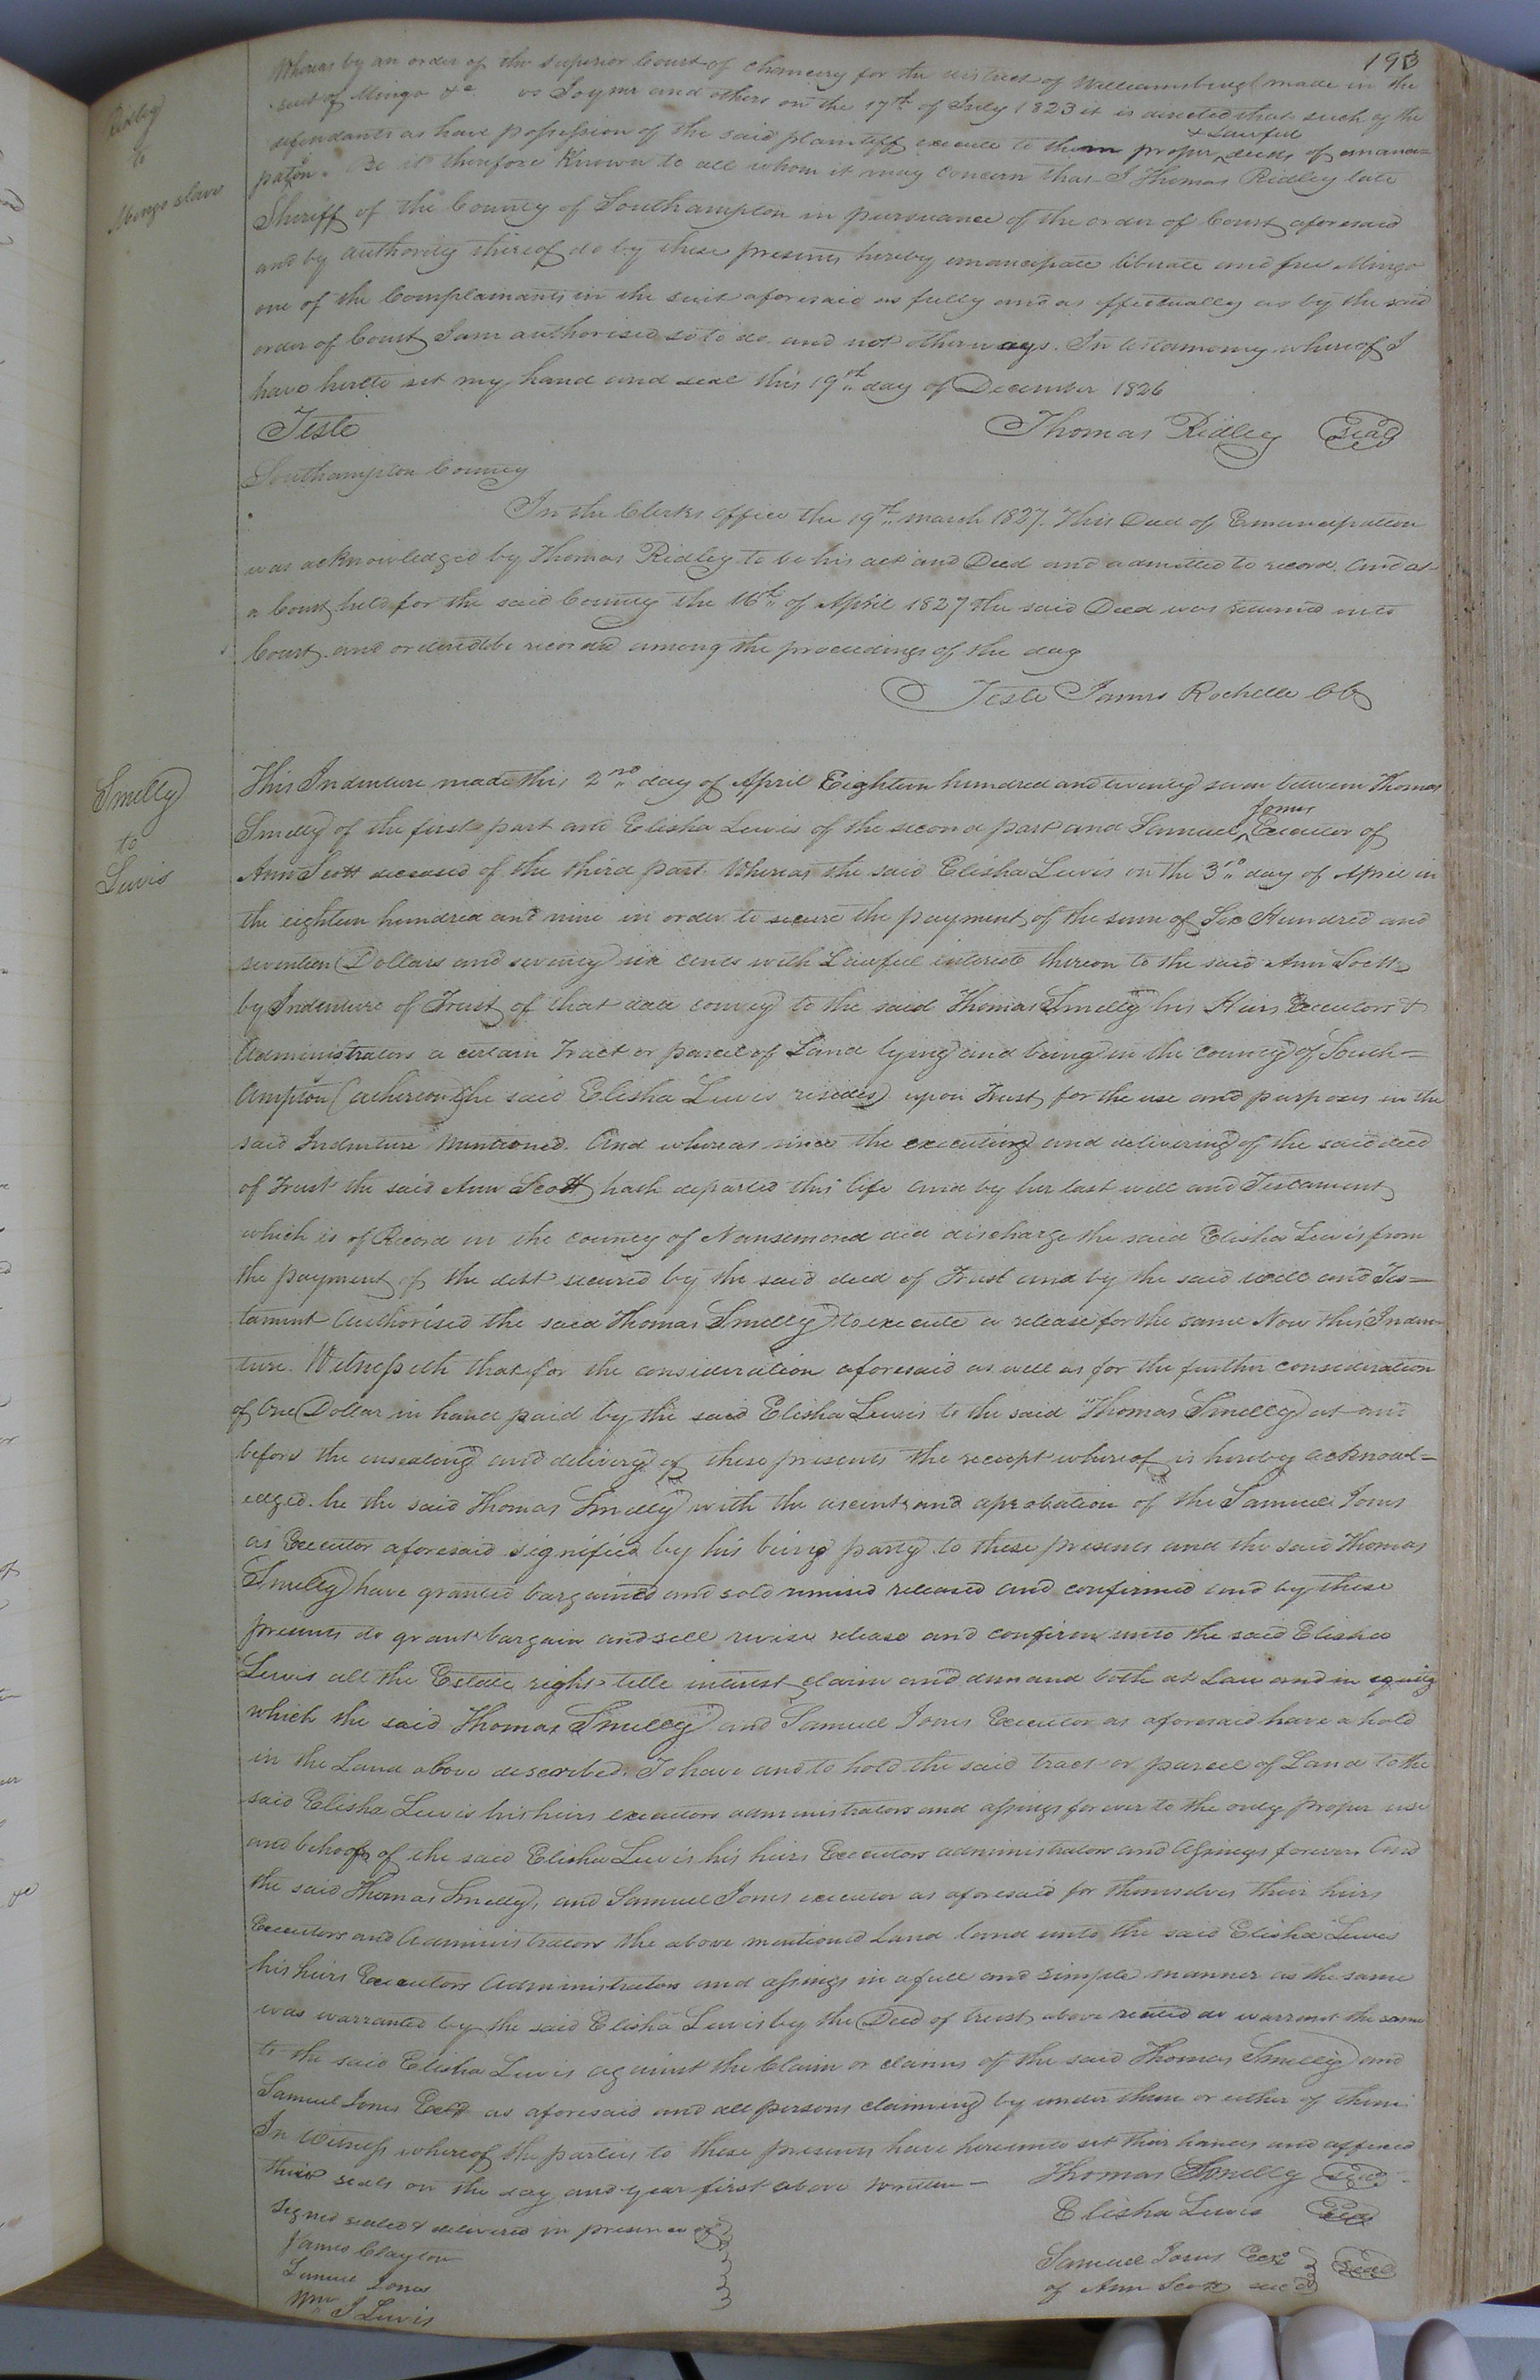 193
Ridley
to
Mingo slave
Whereas by an order of the Superior Court of Chancery for the district of Williamsburg made in the
suit of Mingo &c vs Joyner and others on the 17th of July 1823 it is directed that such of the
defendants as have possession of the said plaintiff execute to them proper & Lawful deeds of emanci=
pation. Be it therefore Known to all whom it may concern that I Thomas Ridley late
Sheriff of the County of Southampton in pursuance of the order of Court aforesaid
and by authority thereof do by these presents hereby emancipate liberate and free Mingo
one of the Complainants in the suit aforesaid as fully and as effectually as by the said
order of Court I am authorised so to do and not otherways. In testamony whereof I
have hereto set my hand and seal this 19th day of December 1826
Teste Thomas Ridley Seal
Southampton County
In the Clerks office the 19th march 1827. This Deed of Emancipation
was acknowledged by Thomas Ridley to be his act and Deed and admitted to record. And at
a Court held for the said County the 16th of April 1827 the said Deed was returned into
Court and ordered to be recorded among the proceedings of the day
Teste James Rochelle CC
Smelly
to
Lewis
This Indenture made this 2nd day of April Eighteen hundred and twenty seven between Thomas
Smelly of the first part and Elisha Lewis of the second part and Samuel Jones Executor of
Ann Scott deceased of the third part. Whereas the said Elisha Lewis on the 3rd day of April in
the eighteen hundred and nine in order to secure the payment of the sum of Six Hundred and
seventeen Dollars and seventy six cents with Lawful interest thereon to the said Ann Scott
by Indenture of Trust of that date convey to the said Thomas Smelly his Heirs Executors &
Administrators a certain Tract or parcel of Land lying and being in the county of South=
Ampton (whereon the said Elisha Lewis resides) upon Trust for the use and purposes in the
said Indenture Mentioned. And whereas since the executing and delivering of the said deed
of Trust the said Ann Scott hath departed this life and by her last will and Testament
which is of Record in the county of Nansemond did discharge the said Elisha Lewis from
the payment of the debt secured by the said deed of Trust and by the said will and Tes=
tament Authorised the said Thomas Smelly to execute a release for the same Now this Inden
ture. Witnesseth that for the consideration aforesaid as well as for the further consideration
of One Dollar in hand paid by the said Elisha Lewis to the said Thomas Smelly at and
before the ensealing and delivery of these presents the receipt whereof is hereby acknowl=
edged. he the said Thomas Smelly with the ascent and aprobation of the Samuel Jones
as Executor aforesaid signified by his being party to these presents and the said Thomas
Smelly have granted bargained and sold remised released and confirmed and by these
presents do grant bargain and sell revise release and confirm unto the said Elisha
Lewis all the Estate right title interest claim and demand both at Law and in equity
which the said Thomas Smelly and Samuel Jones Executor as aforesaid have a hold
in the Land above described. To have and to hold the said tract or parcel of Land to the
said Elisha Lewis his heirs executors administrators and assings forever to the only proper use
and behoof of the said Elisha Lewis his heirs Executors administrators and Assings forever. And
the said Thomas Smelly, and Samuel Jones executor as aforesaid for themselves their heirs
Executors and Administrators the above mentioned Land land unto the said Elisha Lewis
his heirs Executors Administrators and assings in a full and simple manner as the same
was warranted by the said Elisha Lewis by the Deed of trust above recited do warrant the same
to the said Elisha Lewis against the Claim or claims of the said Thomas Smelly and
Samuel Jones Exor as aforesaid and all persons claiming by under them or either of them.
In Witness whereof the parties to these presents have hereunto set their hands and affixed
their seals on the day and year first above written = Thomas Smelly Seal
Signed sealed & delivered in presence of Elisha Lewis Seal
James Clayton Samuel Jones Exor Seal
Lemuel Jones of Ann Scott dec'd
Wm J Lewis